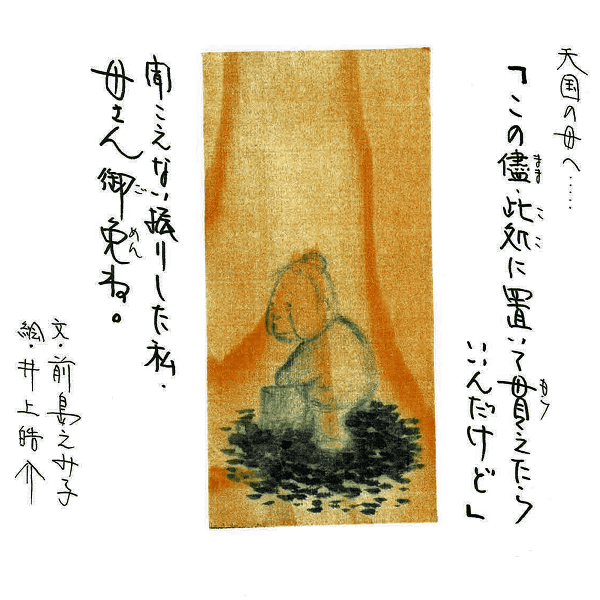 天国の母へ……
「この儘、此処に置いて貰えたら
いいんだけど」
聞こえない振りした私、
母さん御免ね。
文・前島えみ子
絵・井上皓介